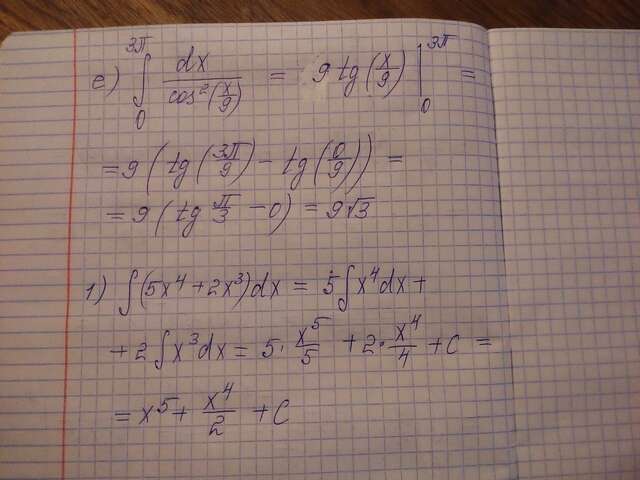 е) ∫₀^{3π} dx / cos²(x/9) = 9 tg(x/9) |₀^{3π} =
= 9(tg(3π/9) − tg(0/9)) =
= 9(tg π/3 − 0) = 9√3
1) ∫(5x⁴ + 2x³)dx = 5∫x⁴dx +
+ 2∫x³dx = 5 · x⁵/5 + 2 · x⁴/4 + C =
= x⁵ + x⁴/2 + C